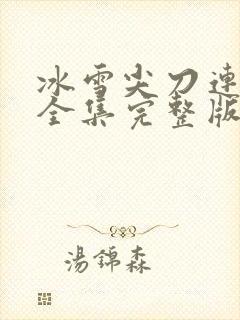 冰雪尖刀連
全集完整版
湯錦森